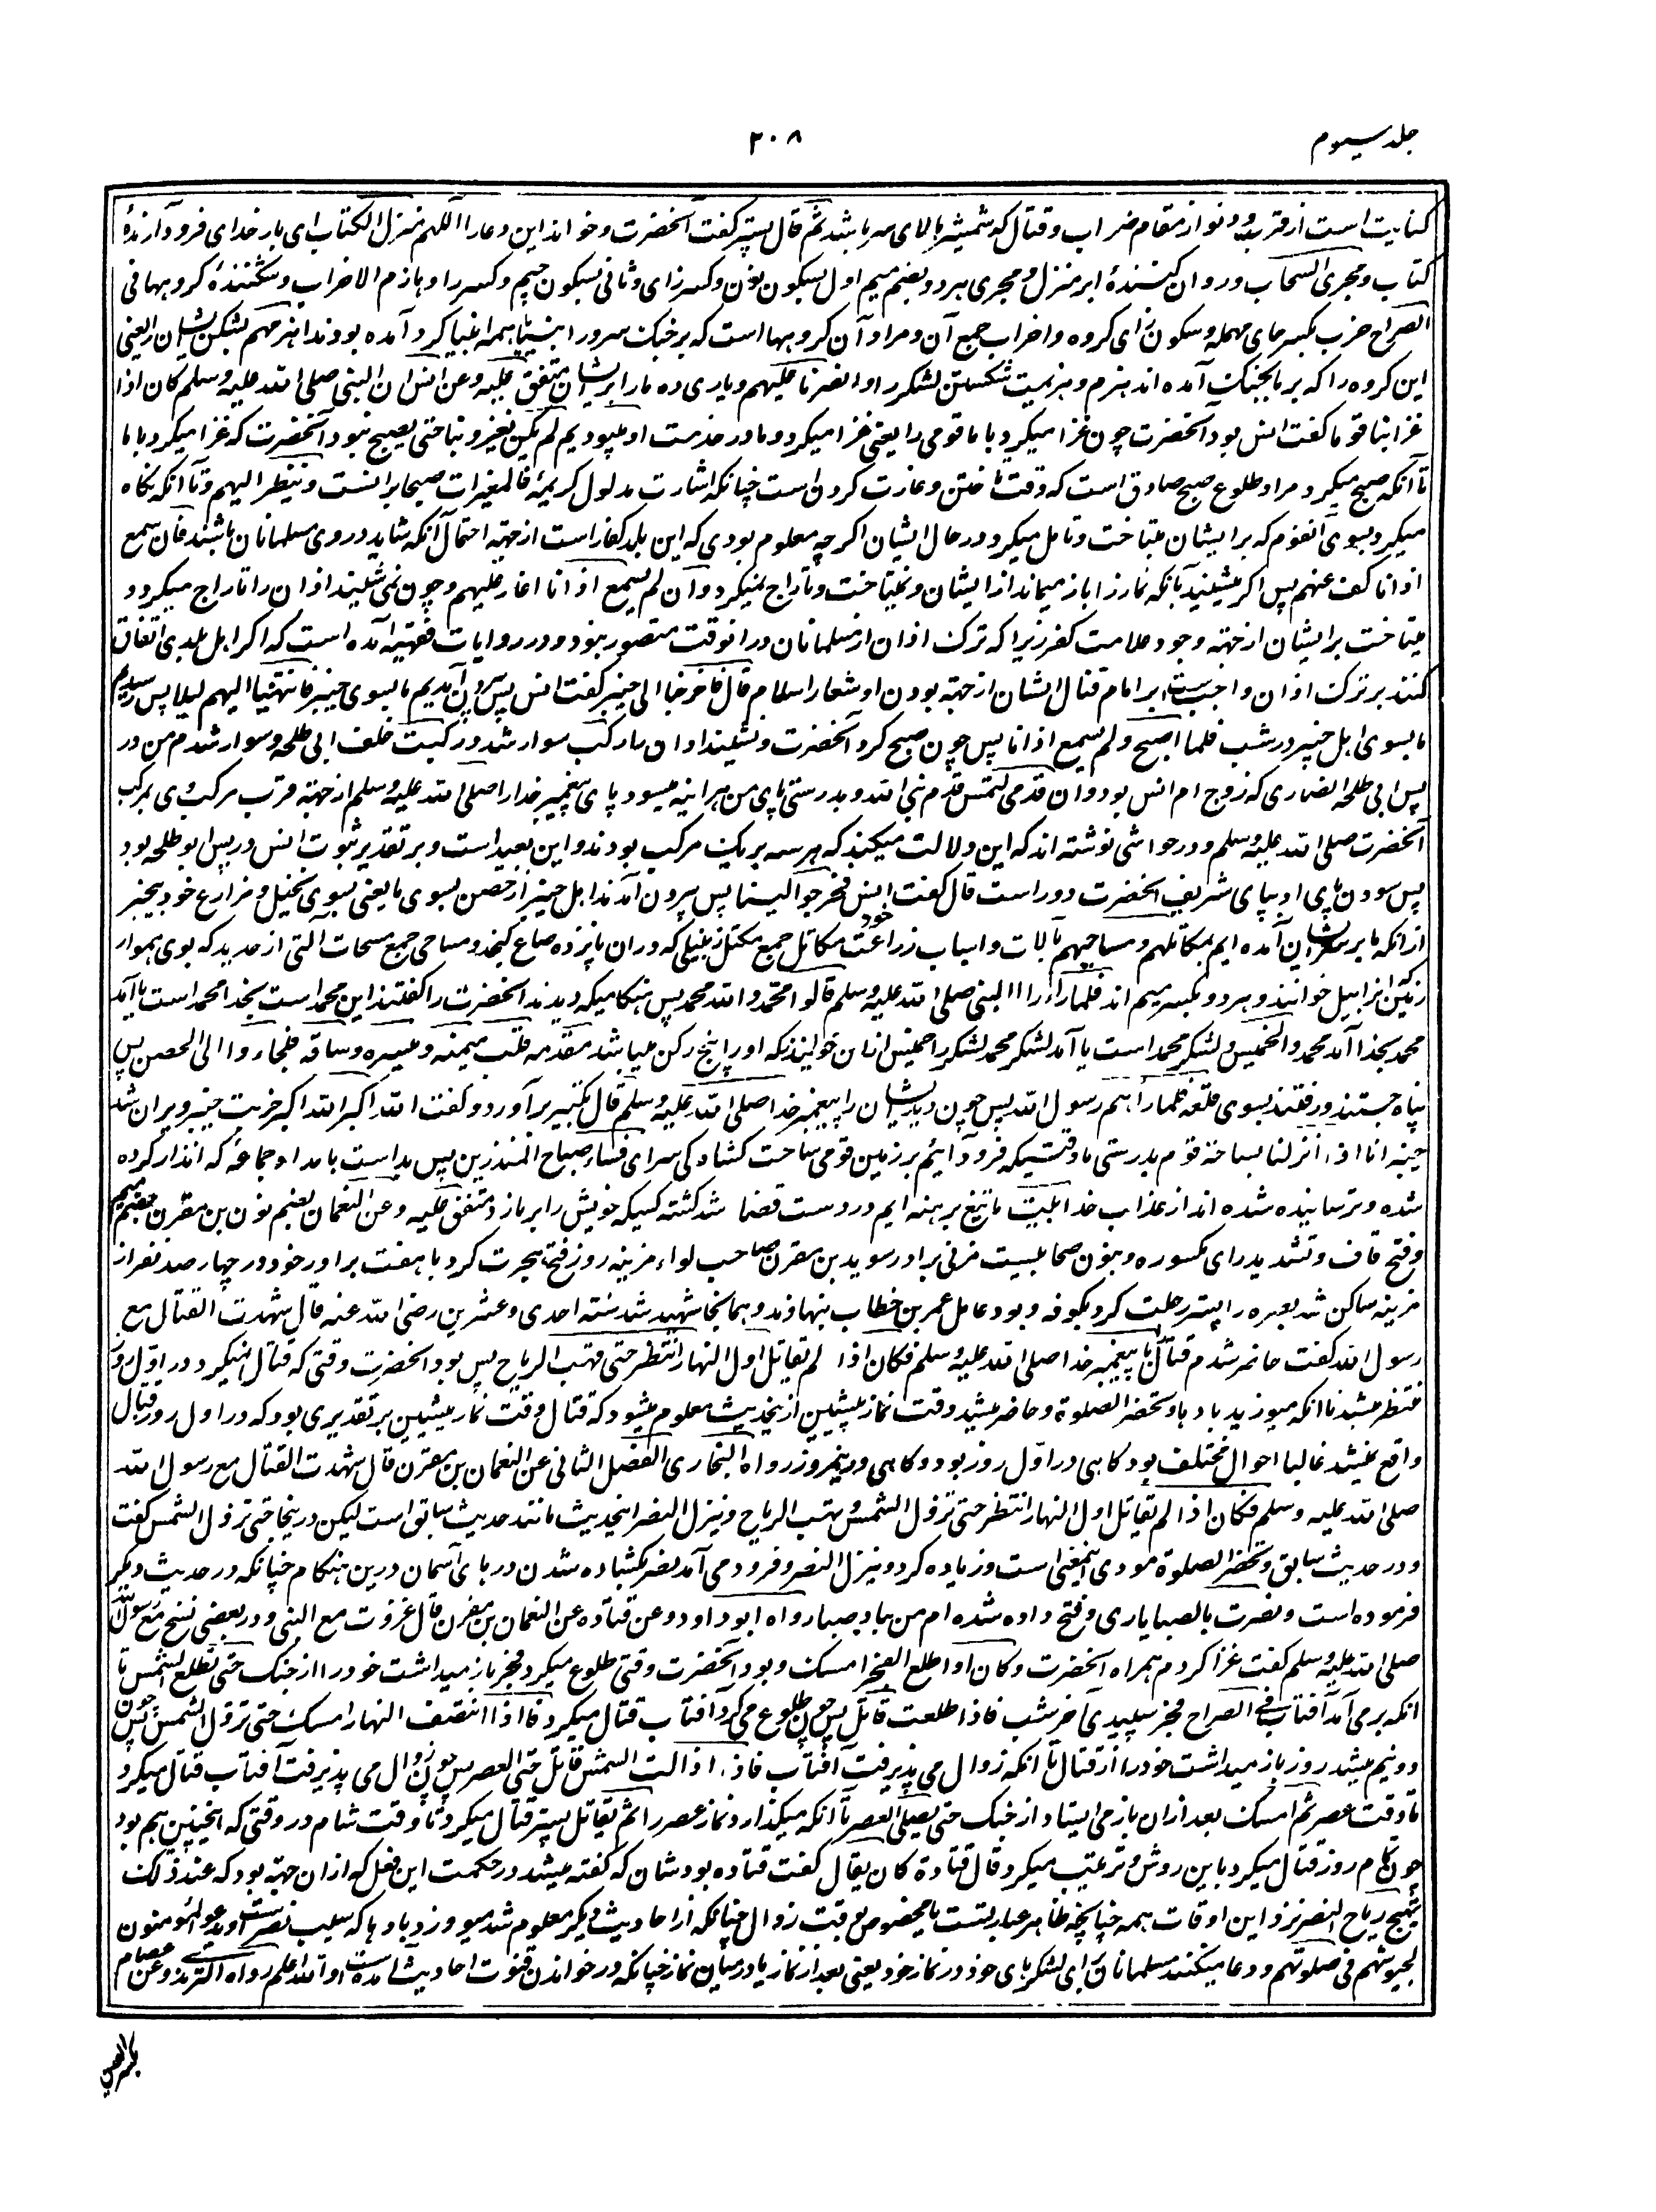 جلد سیوم
۲۰۸
کنایت است از قرب و دنو از مقام ضراب و قتال که شمشیر بالای سر باشد ثم قال پستر گفت آنحضرت و خواند این دعا را اللهم منزل الکتاب ای بار خدای فرود آرنده
کتاب و مجری السحاب و روان کنندهٔ ابر منزل و مجری هر دو بضم میم اول بسکون نون و کسر زای و ثانی بسکون جیم و کسر را و هازم الاحزاب و شکنندهٔ گروهها فی
الصراح حزب بکسر حای مهمله و سکون زای گروه و احزاب جمع آن و مراد آن گروهها است که بر جنگ سرور انبیا همه اغبیا گرد آمده بودند اهزمهم بشکن ایشان را یعنی
این گروه را که بر ما بجنگ آمده اند هزم و هزیمت شکستن لشکر را و انصرنا علیهم و یاری ده ما را بر ایشان متفق علیه و عن انس ان النبی صلی الله علیه وسلم کان اذا
غزا بنا قوما گفت انس بود آنحضرت چون غزا میکرد با ما قومی را یعنی غزا میکرد و ما در خدمت او میبودیم لم یکن یغیر و بنا حتی یصبح نبود آنحضرت که غزا میکرد با ما
تا آنکه صبح میکرد مراد طلوع صبح صادق است که وقت تاختن و غارت کردن است چنانکه اشارت مدلول کریمهٔ فالمغیرات صبحا برانست و ینظر الیهم و تا آنکه نگاه
میکرد بسوی آنقوم که بر ایشان میتاخت و تامل میکرد در حال ایشان اگرچه معلوم بودی که این بلد کفار است از جهة احتمال آنکه شاید در وی مسلمانان باشند فان سمع
اذانا کف عنهم پس اگر میشنید بانگ نماز را باز میماند از ایشان و نمیتاخت و تاراج نمیکرد وان لم یسمع اذانا اغار علیهم و چون نمی شنید اذان را تاراج میکرد و
میتاخت بر ایشان از جهة وجود علامت کفر زیرا که ترک اذان از مسلمانان در انوقت متصور نبود و در روایات فقهیه آمده است که اگر اهل بلدی اتفاق
کنند بر ترک اذان واجب است بر امام قتال ایشان از جهة بودن او شعار اسلام قال فخرجنا الی خیبر گفت انس پس برون آمدیم ما بسوی خیبر فانتهینا الیهم لیلا پس رسیدیم
ما بسوی اهل خیبر در شب فلما اصبح ولم یسمع اذانا پس چون صبح کرد آنحضرت و نشنید اذان را رکب سوار شد و رکبت خلف ابی طلحه و سوار شدم من در
پس ابی طلحه انصاری که زوج ام انس بود وان قدمی لتمس قدم نبی الله و بدرستی پای من هر اینه میسود پای پیغمبر خدا را صلی الله علیه وسلم از جهة قرب مرکب وی بمرکب
آنحضرت صلی الله علیه وسلم و در حواشی نوشته اند که این دلالت میکند که هر سه بر یک مرکب بودند و این بعید است و بر تقدیر ثبوت انس در پس ابو طلحه بود
پس سودن پای او بپای شریف آنحضرت دور است قال گفت انس فخرجوا الینا پس بیرون آمدند اهل خیبر از حصن بسوی ما یعنی بسوی نخیل و مزارع خود بیخبر
از انکه ما بر سر ایشان آمده ایم بمکاتلهم و مساحیهم بآلات و اسباب زراعت خود مکاتل جمع مکتل زنبیلی که دران پانزده صاع گنجد و مساحی جمع مسحات آلتی از حدید که بوی هموار
زمین از بیل خوانند و هر دو بکسر میم اند فلما راوا النبی صلی الله علیه وسلم قالوا محمد والله محمد پس هنگامیکه دیدند آنحضرت را گفتند این محمد است بخدا محمد است یا آمد
محمد بخدا آمد محمد والخمیس و لشکر محمد است یا آمد لشکر محمد لشکر را خمیس ازان خوانند که او را پنج رکن میباشد مقدمه قلب میمنه و میسره و ساقه فلجاءوا الی الحصن پس
پناه جستند و رفتند بسوی قلعه فلما راهم رسول الله پس چون دید ایشان را پیغمبر خدا صلی الله علیه وسلم قال تکبیر برآورد و گفت الله اکبر الله اکبر خربت خیبر ویران شد
خیبر انا اذا نزلنا بساحة قوم بدرستی ما وقتیکه فرود آئیم بر زمین قومی ساحت کشادگی سرای فساء صباح المنذرین پس بد است بامداد جماعه که انذار کرده
شده و ترسانیده شده اند از عذاب خدا بیت ما تیغ برهنه ایم در دست قضا شد کشته کسیکه خویش را بر ما زد متفق علیه و عن النعمان بضم نون بن مقرن بضم میم
و فتح قاف و تشدید رای مکسوره و بنون صحابیست مزنی برادر سوید بن مقرن صاحب لواء مزینه روز فتح هجرت کرد با هفت برادر خود در چهار صد نفر از
مزینه ساکن شد بصره را پستر رحلت کرد بکوفه و بود عامل عمر بن خطاب بنهاوند و همانجا شهید شد سنه احدی وعشرین رضی الله عنه قال شهدت القتال مع
رسول الله گفت حاضر شدم قتال با پیغمبر خدا صلی الله علیه وسلم فکان اذا لم یقاتل اول النهار انتظر حتی تهب الریاح پس بود آنحضرت وقتی که قتال نمیکرد در اول روز
منتظر میشد تا آنکه میوزید بادها و تحضر الصلوة و حاضر میشد وقت نماز پیشین ازینحدیث معلوم میشود که قتال وقت نماز پیشین بر تقدیری بود که در اول روز قتال
واقع نمیشد غالبا احوال مختلف بود گاهی در اول روز بود و گاهی در نیمروز رواه البخاری الفصل الثانی عن النعمان بن مقرن قال شهدت القتال مع رسول الله
صلی الله علیه وسلم فکان اذا لم یقاتل اول النهار انتظر حتی تزول الشمس و تهب الریاح و ینزل النصر اینحدیث مانند حدیث سابق است لیکن درینجا حتی تزول الشمس گفت
و در حدیث سابق و تحضر الصلوة مودی اینمعنی است و زیاده کرد و ینزل النصر و فرود می آمد نصر بکشاده شدن درهای آسمان درین هنگام چنانکه در حدیث دیگر
فرموده است و نصرت بالصبا یاری و فتح داده شده ام من بباد صبا رواه ابو داود و عن قتاده عن النعمان بن مقرن قال غزوت مع النبی و در بعضی نسخ مع رسول الله
صلی الله علیه وسلم گفت غزا کردم همراه آنحضرت و کان اذا طلع الفجر امسک و بود آنحضرت وقتی طلوع میکرد فجر باز میداشت خود را از جنگ حتی تطلع الشمس تا
آنکه بر می آمد آفتاب فی الصراح فجر سپیدی آخر شب فاذا طلعت قاتل پس چون طلوع میکرد آفتاب قتال میکرد فاذا انتصف النهار امسک حتی تزول الشمس پس چون
دو نیم میشد روز باز میداشت خود را از قتال تا آنکه زوال می پذیرفت آفتاب فاذا زالت الشمس قاتل حتی العصر پس چون زوال می پذیرفت آفتاب قتال میکرد
تا وقت عصر ثم امسک بعد ازان باز می ایستاد از جنگ حتی یصلی العصر تا آنکه میگذارد نماز عصر را ثم یقاتل پستر قتال میکرد تا وقت شام در وقتی که اینچنین هم بود
چون تمام روز قتال میکرد باین روش و ترتیب میکرد قال قتادة کان یقال گفت قتاده بود شان که گفته میشد در حکمت این فعل که ازان جهة بود که عند ذلک
تهیج ریاح النصر نزد این اوقات همه چنانچه ظاهر عبارتست یا مخصوص بوقت زوال چنانکه از احادیث دیگر معلوم شد میوزد بادها که سبب نصرت است و یدعو المؤمنون
لجیوشهم فی صلوتهم و دعا میکنند مسلمانان برای لشکرهای خود در نماز خود یعنی بعد از نماز یا در میان نماز چنانکه در خواندن قنوت احادیث آمده است والله اعلم رواه الترمذی و عن عصام